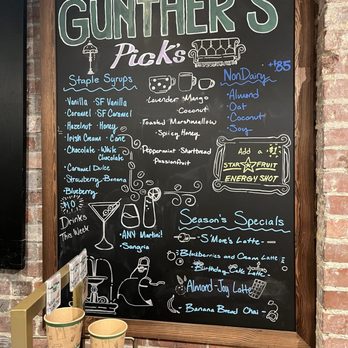 GUNTHER'S
Pick's
Staple Syrups
Vanilla · SF Vanilla
Caramel · SF Caramel
Hazelnut · Honey
Irish Cream · Cane
Chocolate · White Chocolate
Caramel Dulce
Strawberry · Banana
Blueberry
Lavender · Mango
· Coconut
Toasted Marshmallow
· Spicy Honey
Peppermint · Shortbread
Passionfruit
NonDairy
+.85
· Almond
· Oat
· Coconut
· Soy
Add a
STAR FRUIT
ENERGY SHOT
$10
Drinks
This Week
· ANY Martini!
· Sangria
Season's Specials
S'More's Latte
Blackberries and Cream Latte
Birthday Cake Latte
Almond-Joy Latte
Banana Bread Chai